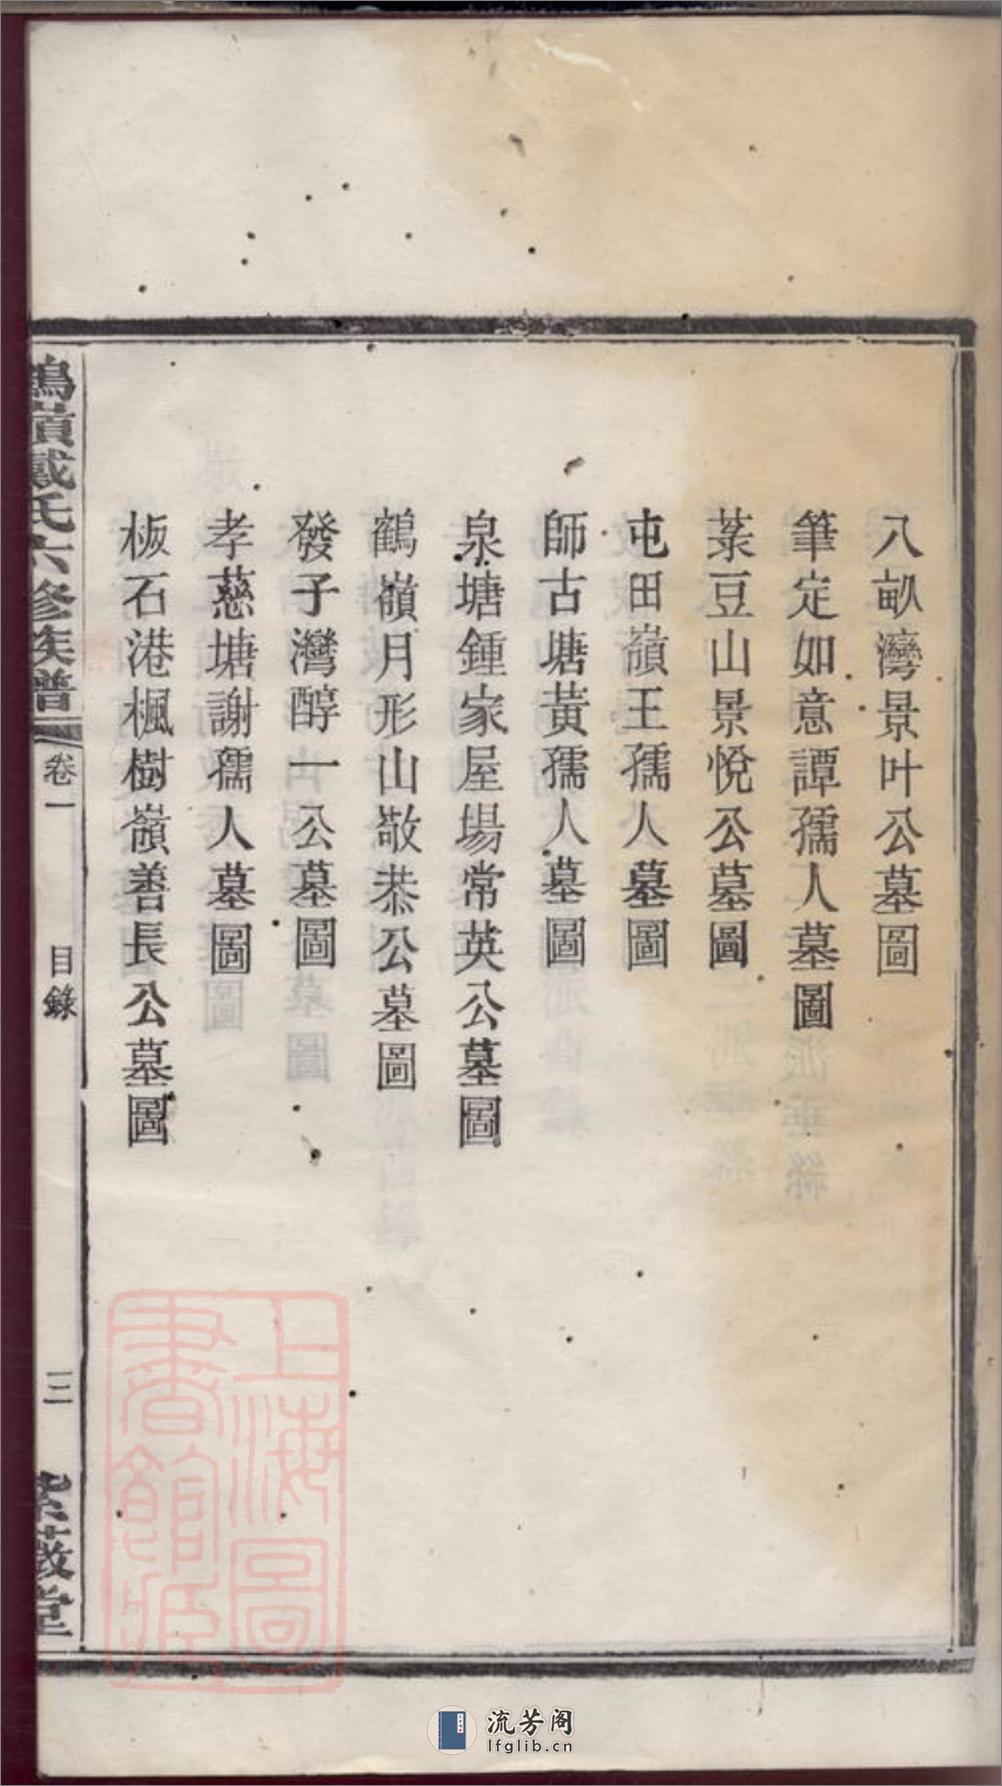 八畝灣景叶公墓圖
筆定如意譚孺人墓圖
菉豆山景悅公墓圖
屯田嶺王孺人墓圖
師古塘黃孺人墓圖
泉塘鍾家屋場常英公墓圖
鶴嶺月形山敬恭公墓圖
發子灣醇一公墓圖
孝慈塘謝孺人墓圖
板石港楓樹嶺善長公墓圖
嶺戴氏六修族譜
卷一
目錄
三
紫薇堂
上海圖
書館藏
流芳阁
lfglib.cn